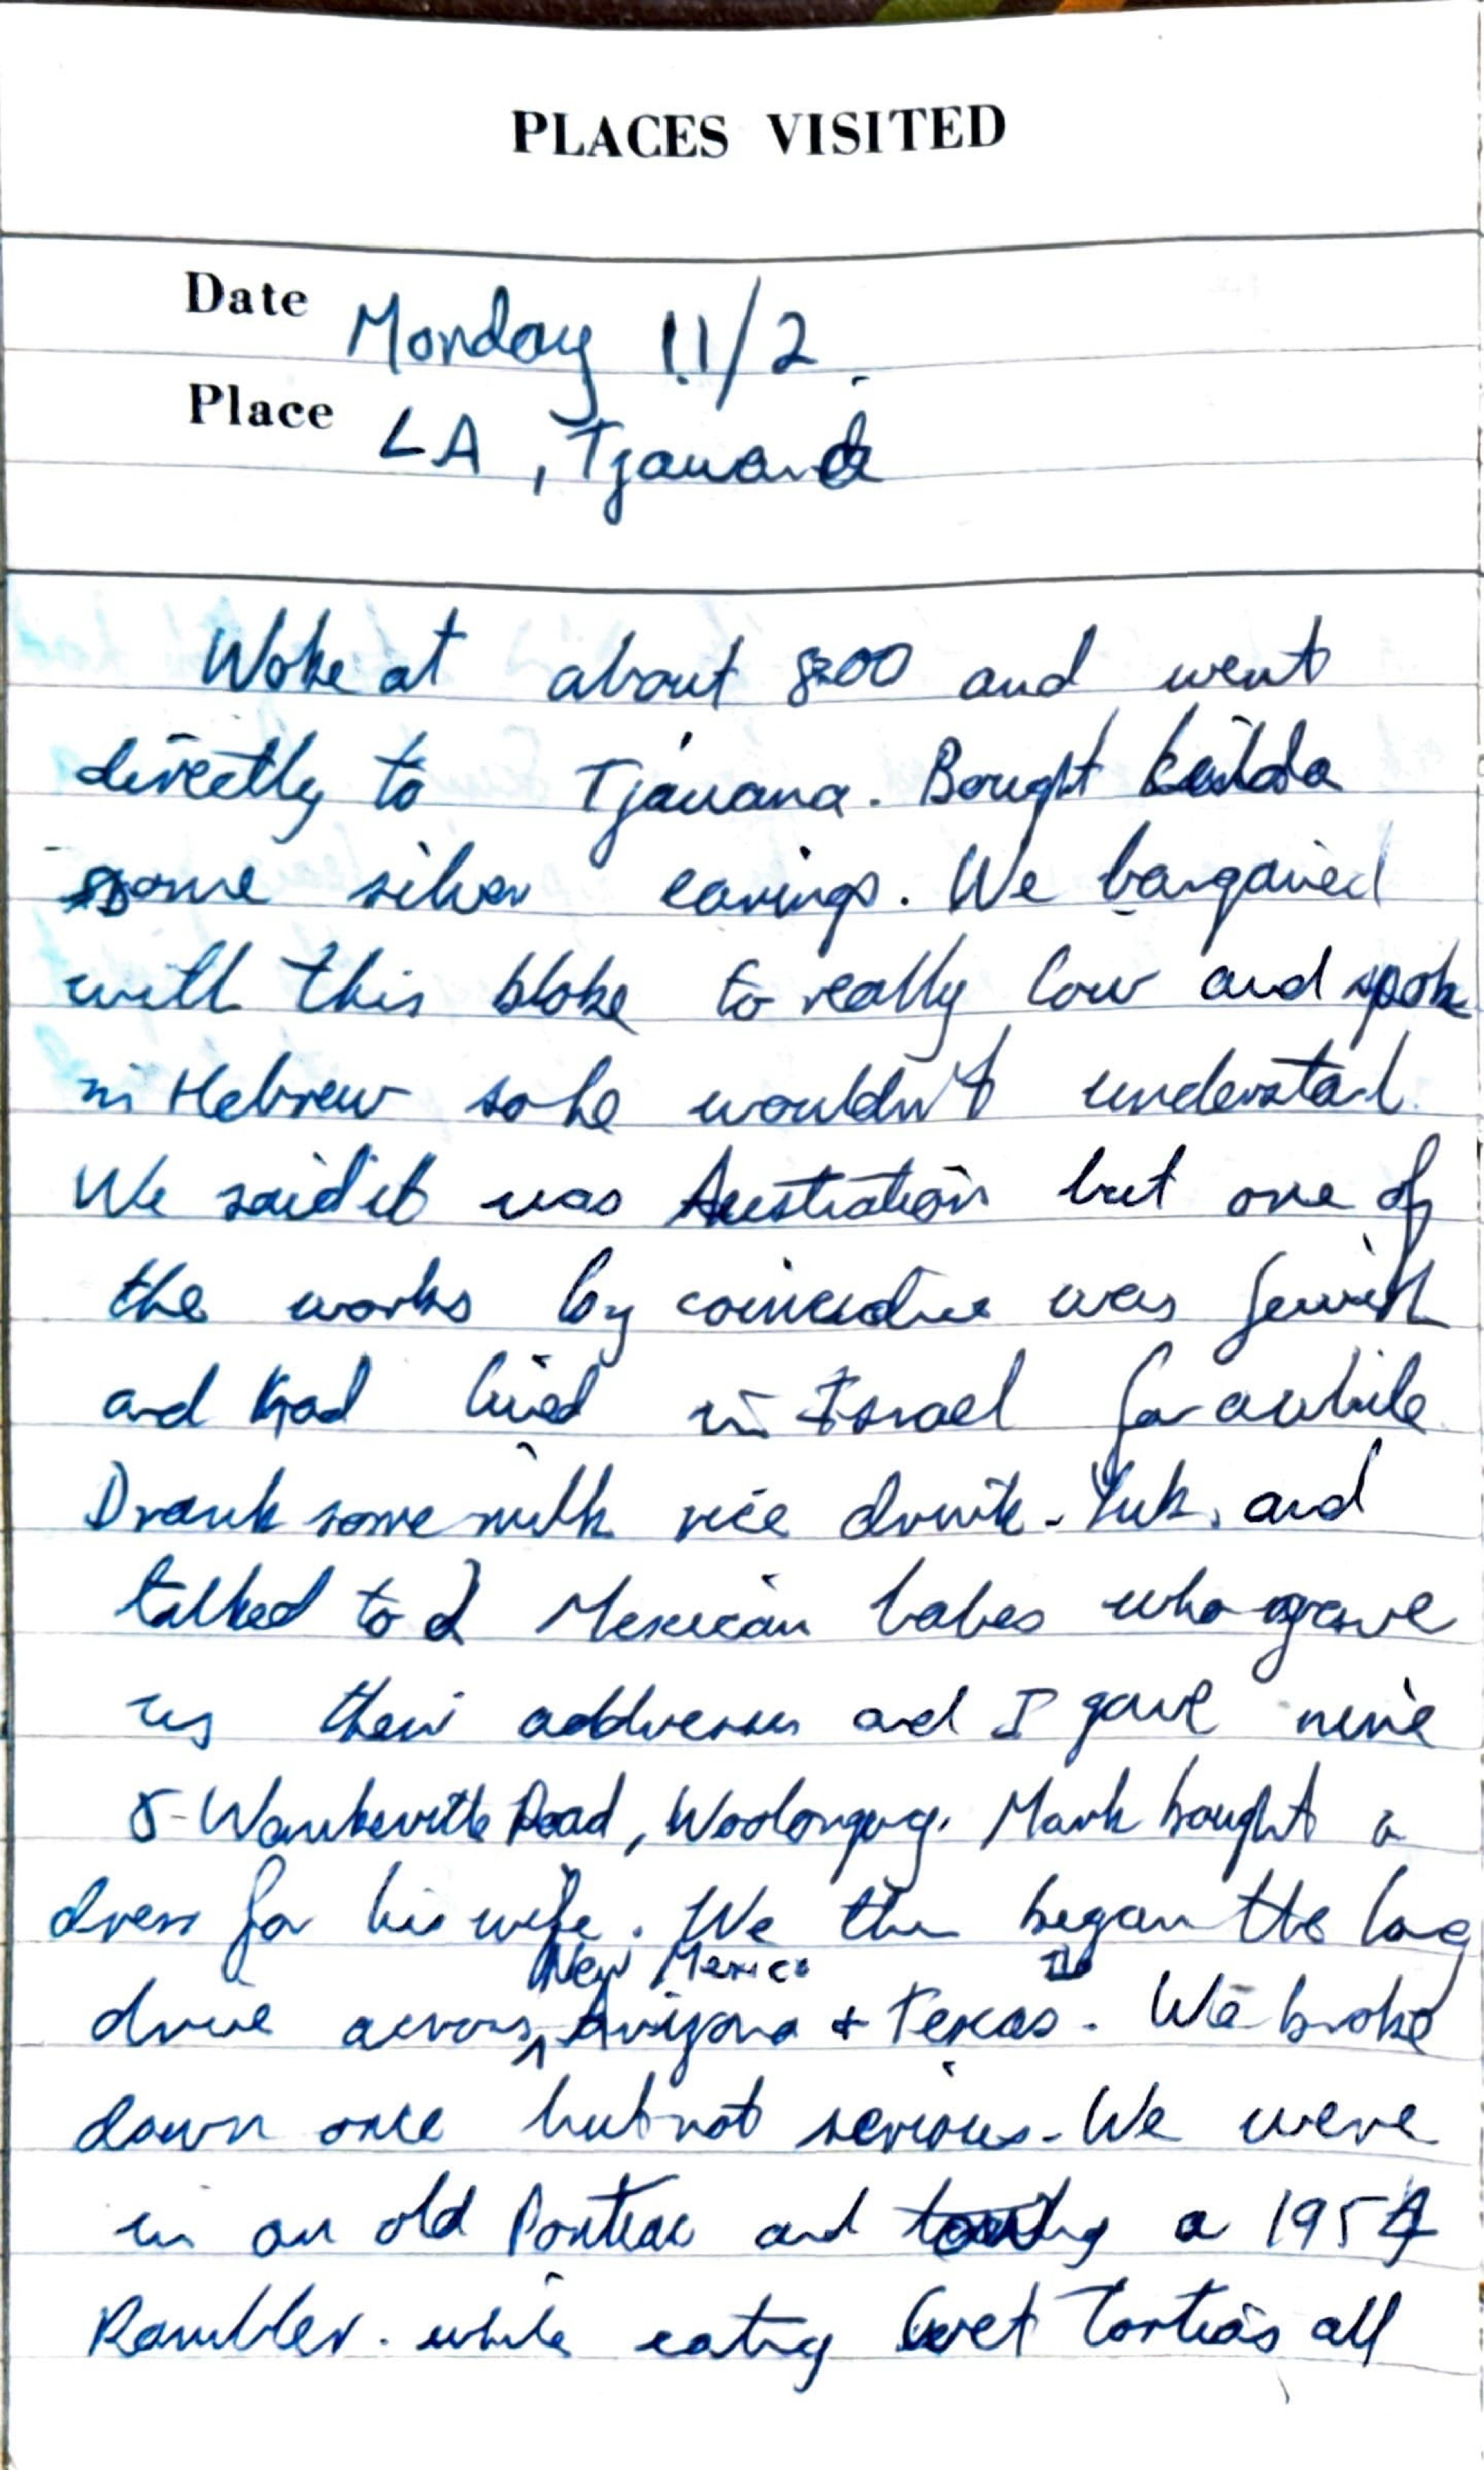 PLACES VISITED
Date Monday 11/2.
Place LA, Tjauana
Woke at about 8:00 and went
directly to Tjauana. Bought
some silver earings. We bargained
with this bloke to really low and spoke
in Hebrew so he wouldn't understand.
We said it was Australian but one of
the works by coincidence was Jewish
and had lived in Israel for awhile
Drank some milk rice drink - Yuk, and
talked to 2 Mexican babes who gave
us their addresses and I gave mine
Road, Woolongong. Mark bought a
dress for his wife. We then began the long
New Mexico
drive across ^ Arizona + Texas. We broke
down once but not serious. We were
in an old Pontiac and towing a 1954
Rambler. while eating wet Tortias all